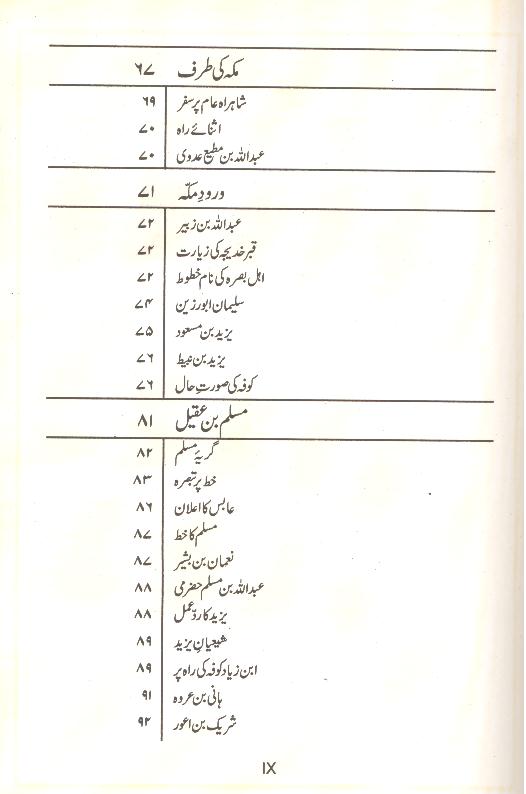 مکہ کی طرف ۶۷
شاہراہ عام پر سفر ۶۹
اثنائے راہ ۷۰
عبداللہ بن مطیع عدوی ۷۰
ورودِ مکّہ ۷۱
عبداللہ بن زبیر ۷۲
قبر خدیجہ کی زیارت ۷۲
اہل بصرہ کی نام خطوط ۷۲
سلیمان ابورزین ۷۴
یزید بن مسعود ۷۵
یزید بن نبیط ۷۶
کوفہ کی صورتِ حال ۷۶
مسلم بن عقیل ۸۱
گریۂ مسلم ۸۲
خط پر تبصرہ ۸۳
عابس کا اعلان ۸۶
مسلم کا خط ۸۷
نعمان بن بشیر ۸۷
عبداللہ بن مسلم حضرمی ۸۸
یزید کا ردِّ عمل ۸۸
شیعیانِ یزید ۸۹
ابن زیاد کوفہ کی راہ پر ۸۹
ہانی بن عروہ ۹۱
شریک بن اعور ۹۲
IX